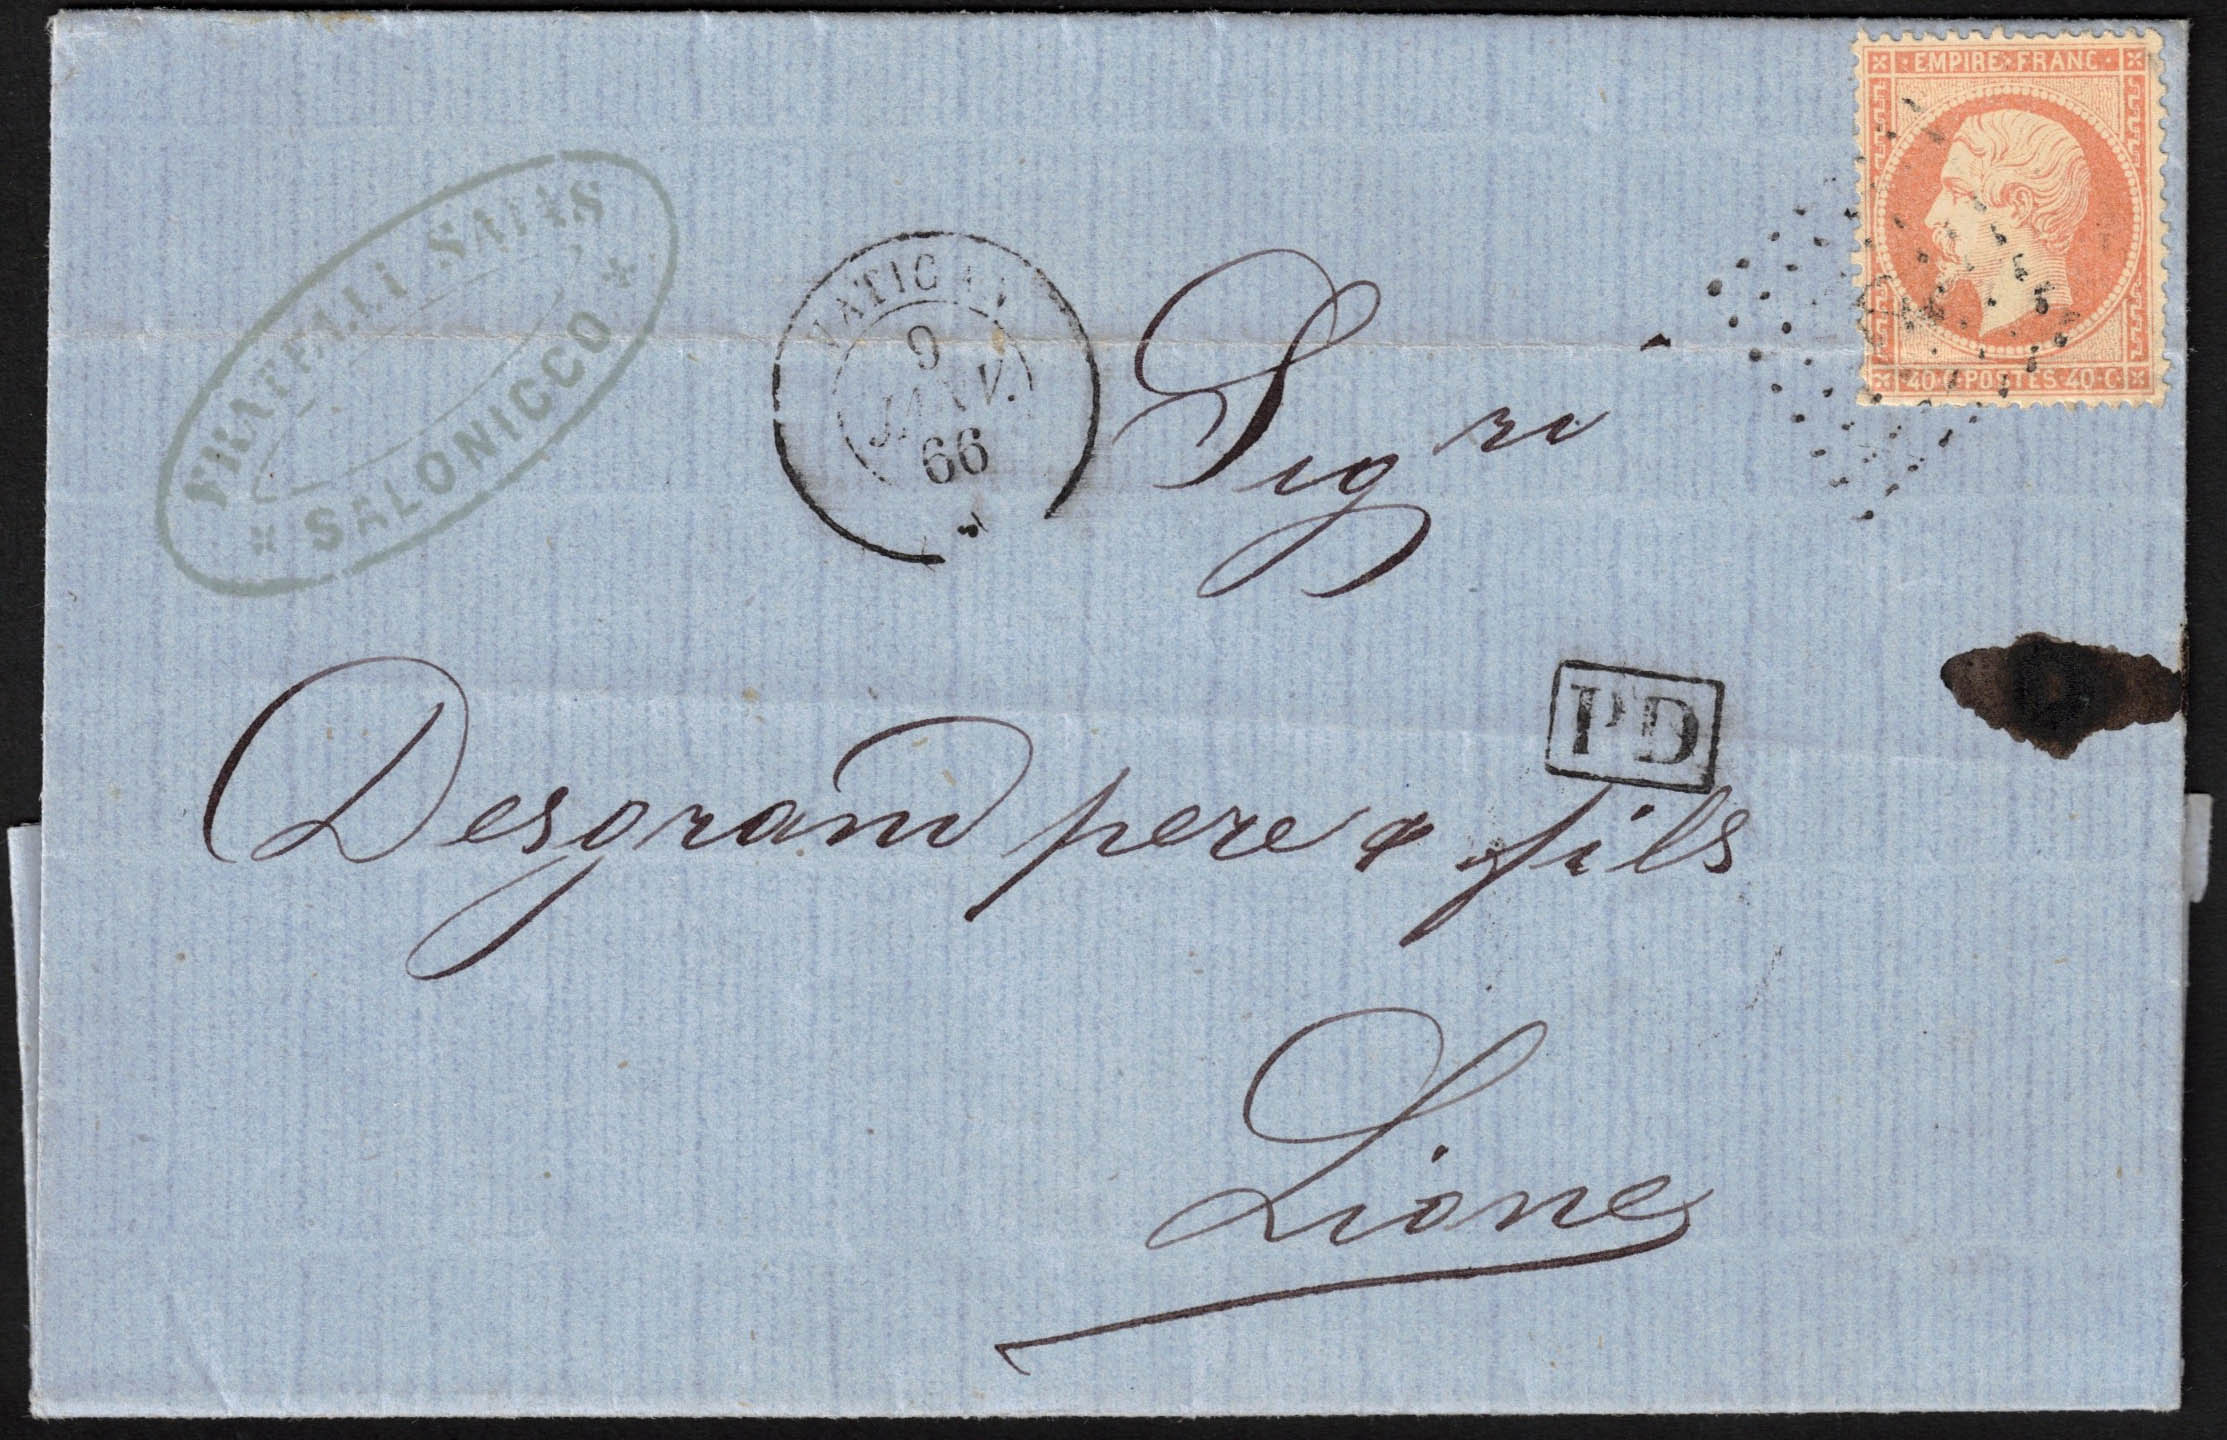 FRATELLI SAIAS
SALONICCO
9
JANV.
66
EMPIRE FRANC
40 C POSTES 40 C
Sig ri
PD
Desgrand pere & fils
Lione